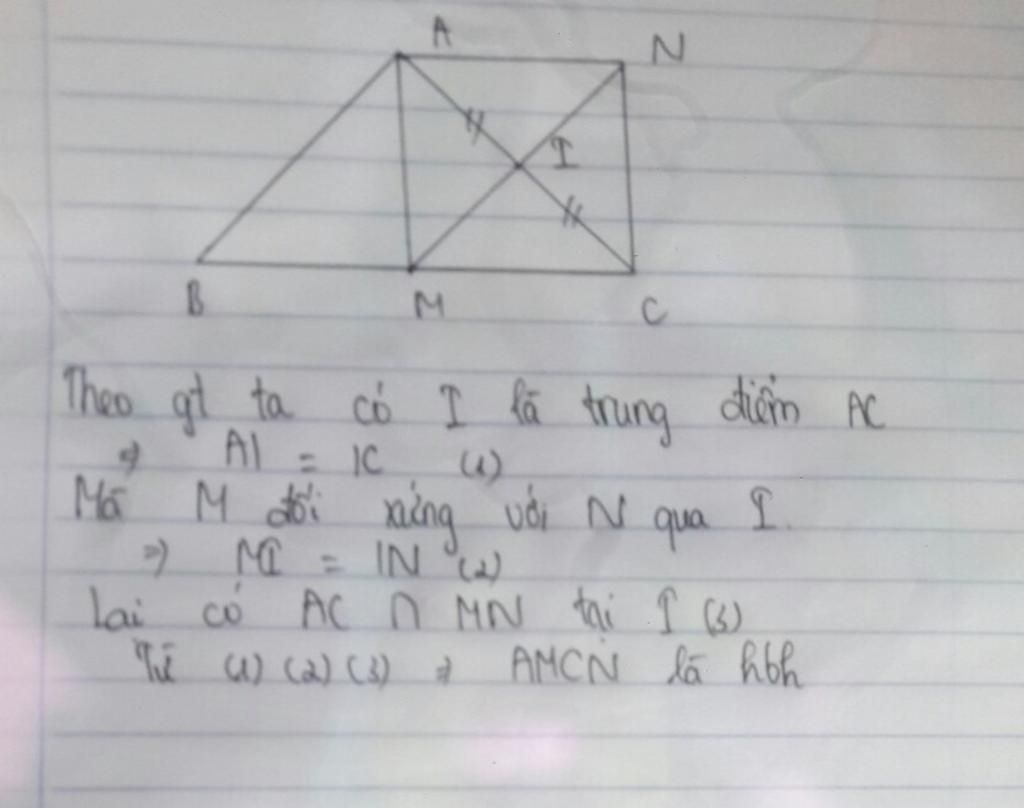 A N
I
B M C
Theo gt ta có I là trung điểm AC
⇒ AI = IC (1)
Mà M đối xứng với N qua I.
⇒ MI = IN (2)
Lại có AC ∩ MN tại I (3)
Từ (1) (2) (3) ⇒ AMCN là hbh